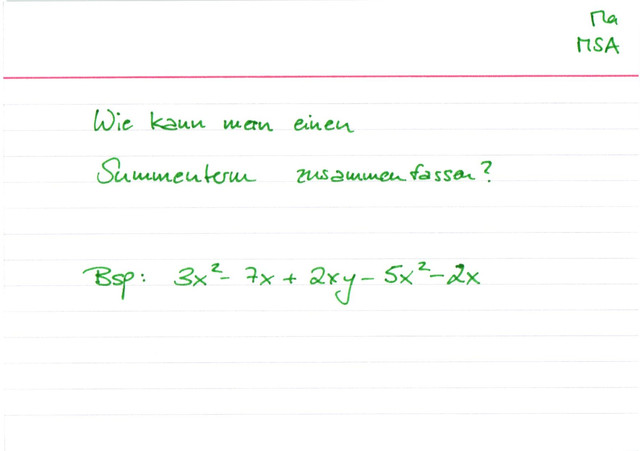 Ma
MSA
Wie kann man einen
Summenterm zusammenfassen?
Bsp: 3x² - 7x + 2xy - 5x² - 2x